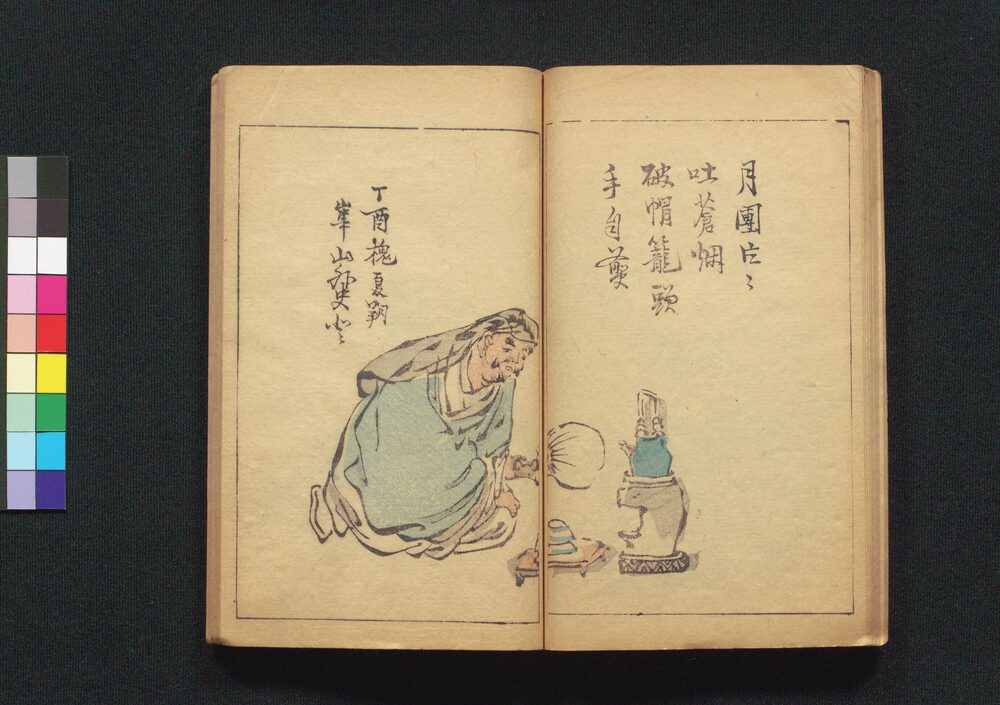 月團片〻
吐蒼烟
破帽籠頭
手自煎
丁酉槐夏朔
崋山外史登